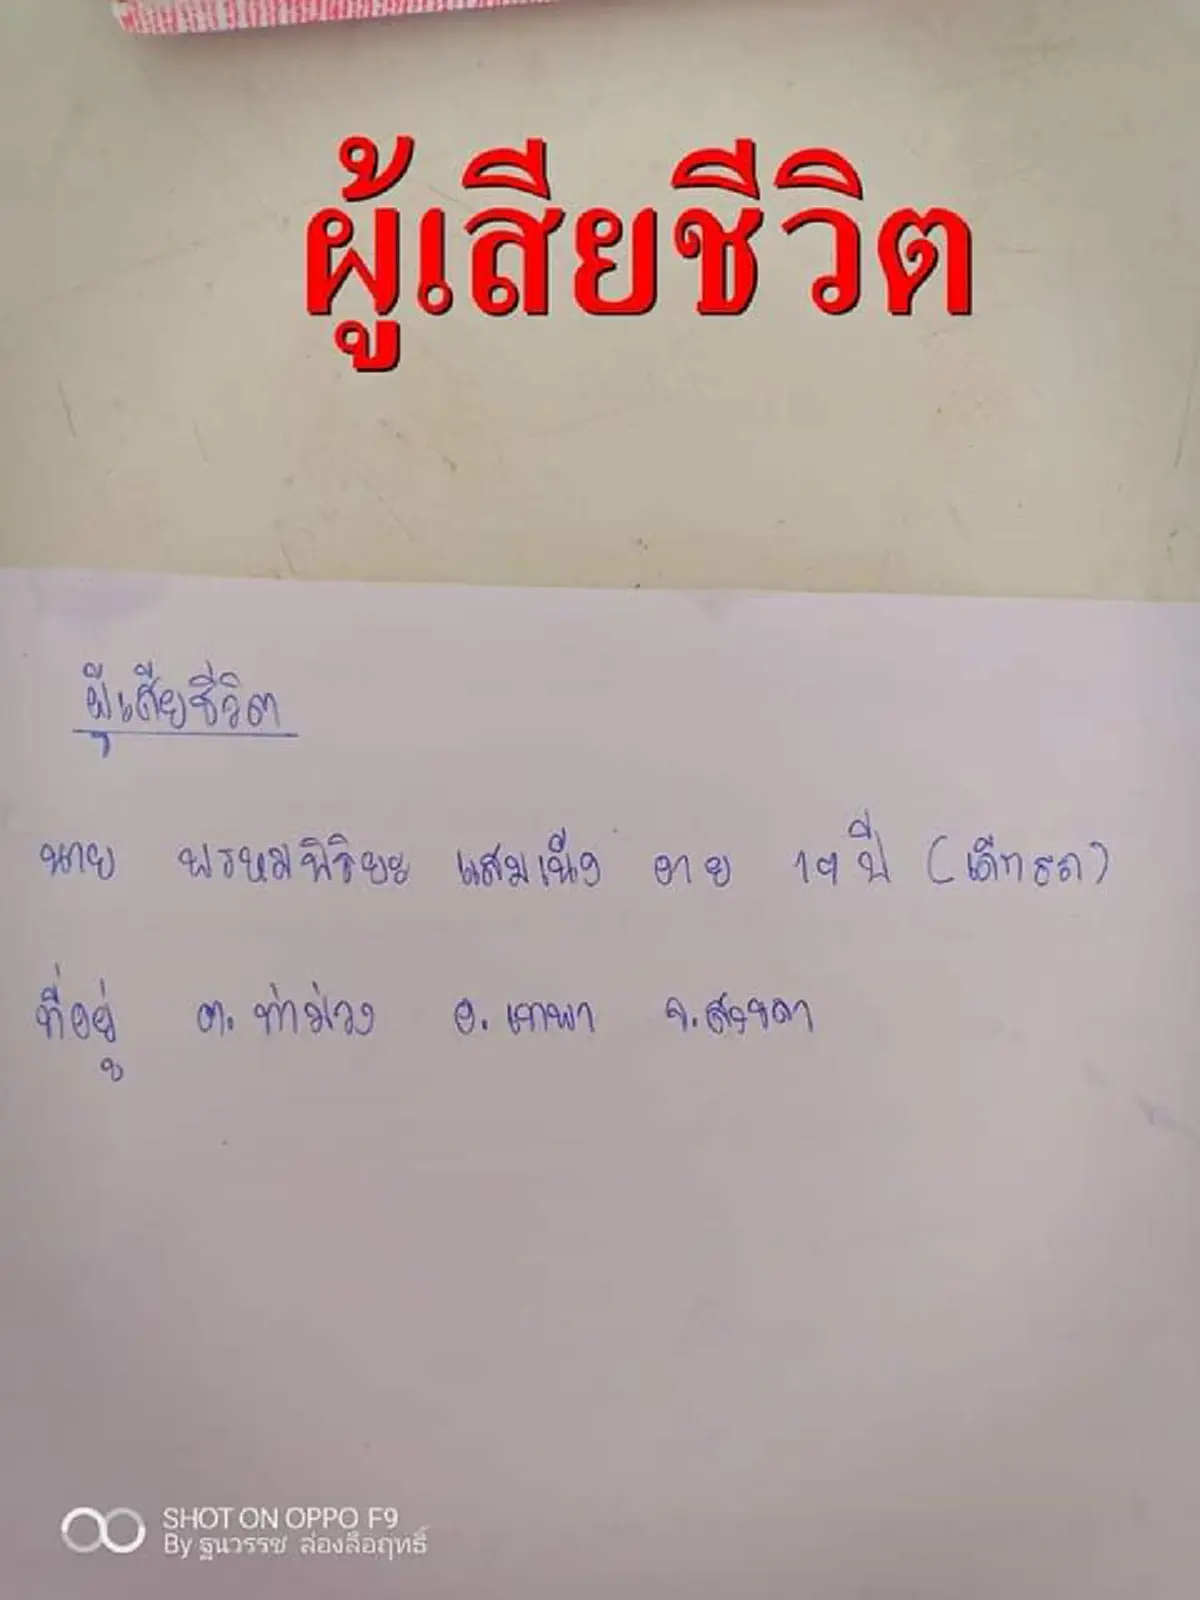 ผู้เสียชีวิต
ผู้เสียชีวิต
นาย พรหมพิริยะ แสมเนีง อายุ 19 ปี (เด็ก
ที่อยู่ ต. ท่าม่วง อ. เทพา จ. สงขลา
SHOT ON OPPO F9
By ฐนวรรช ล่องลือฤทธิ์